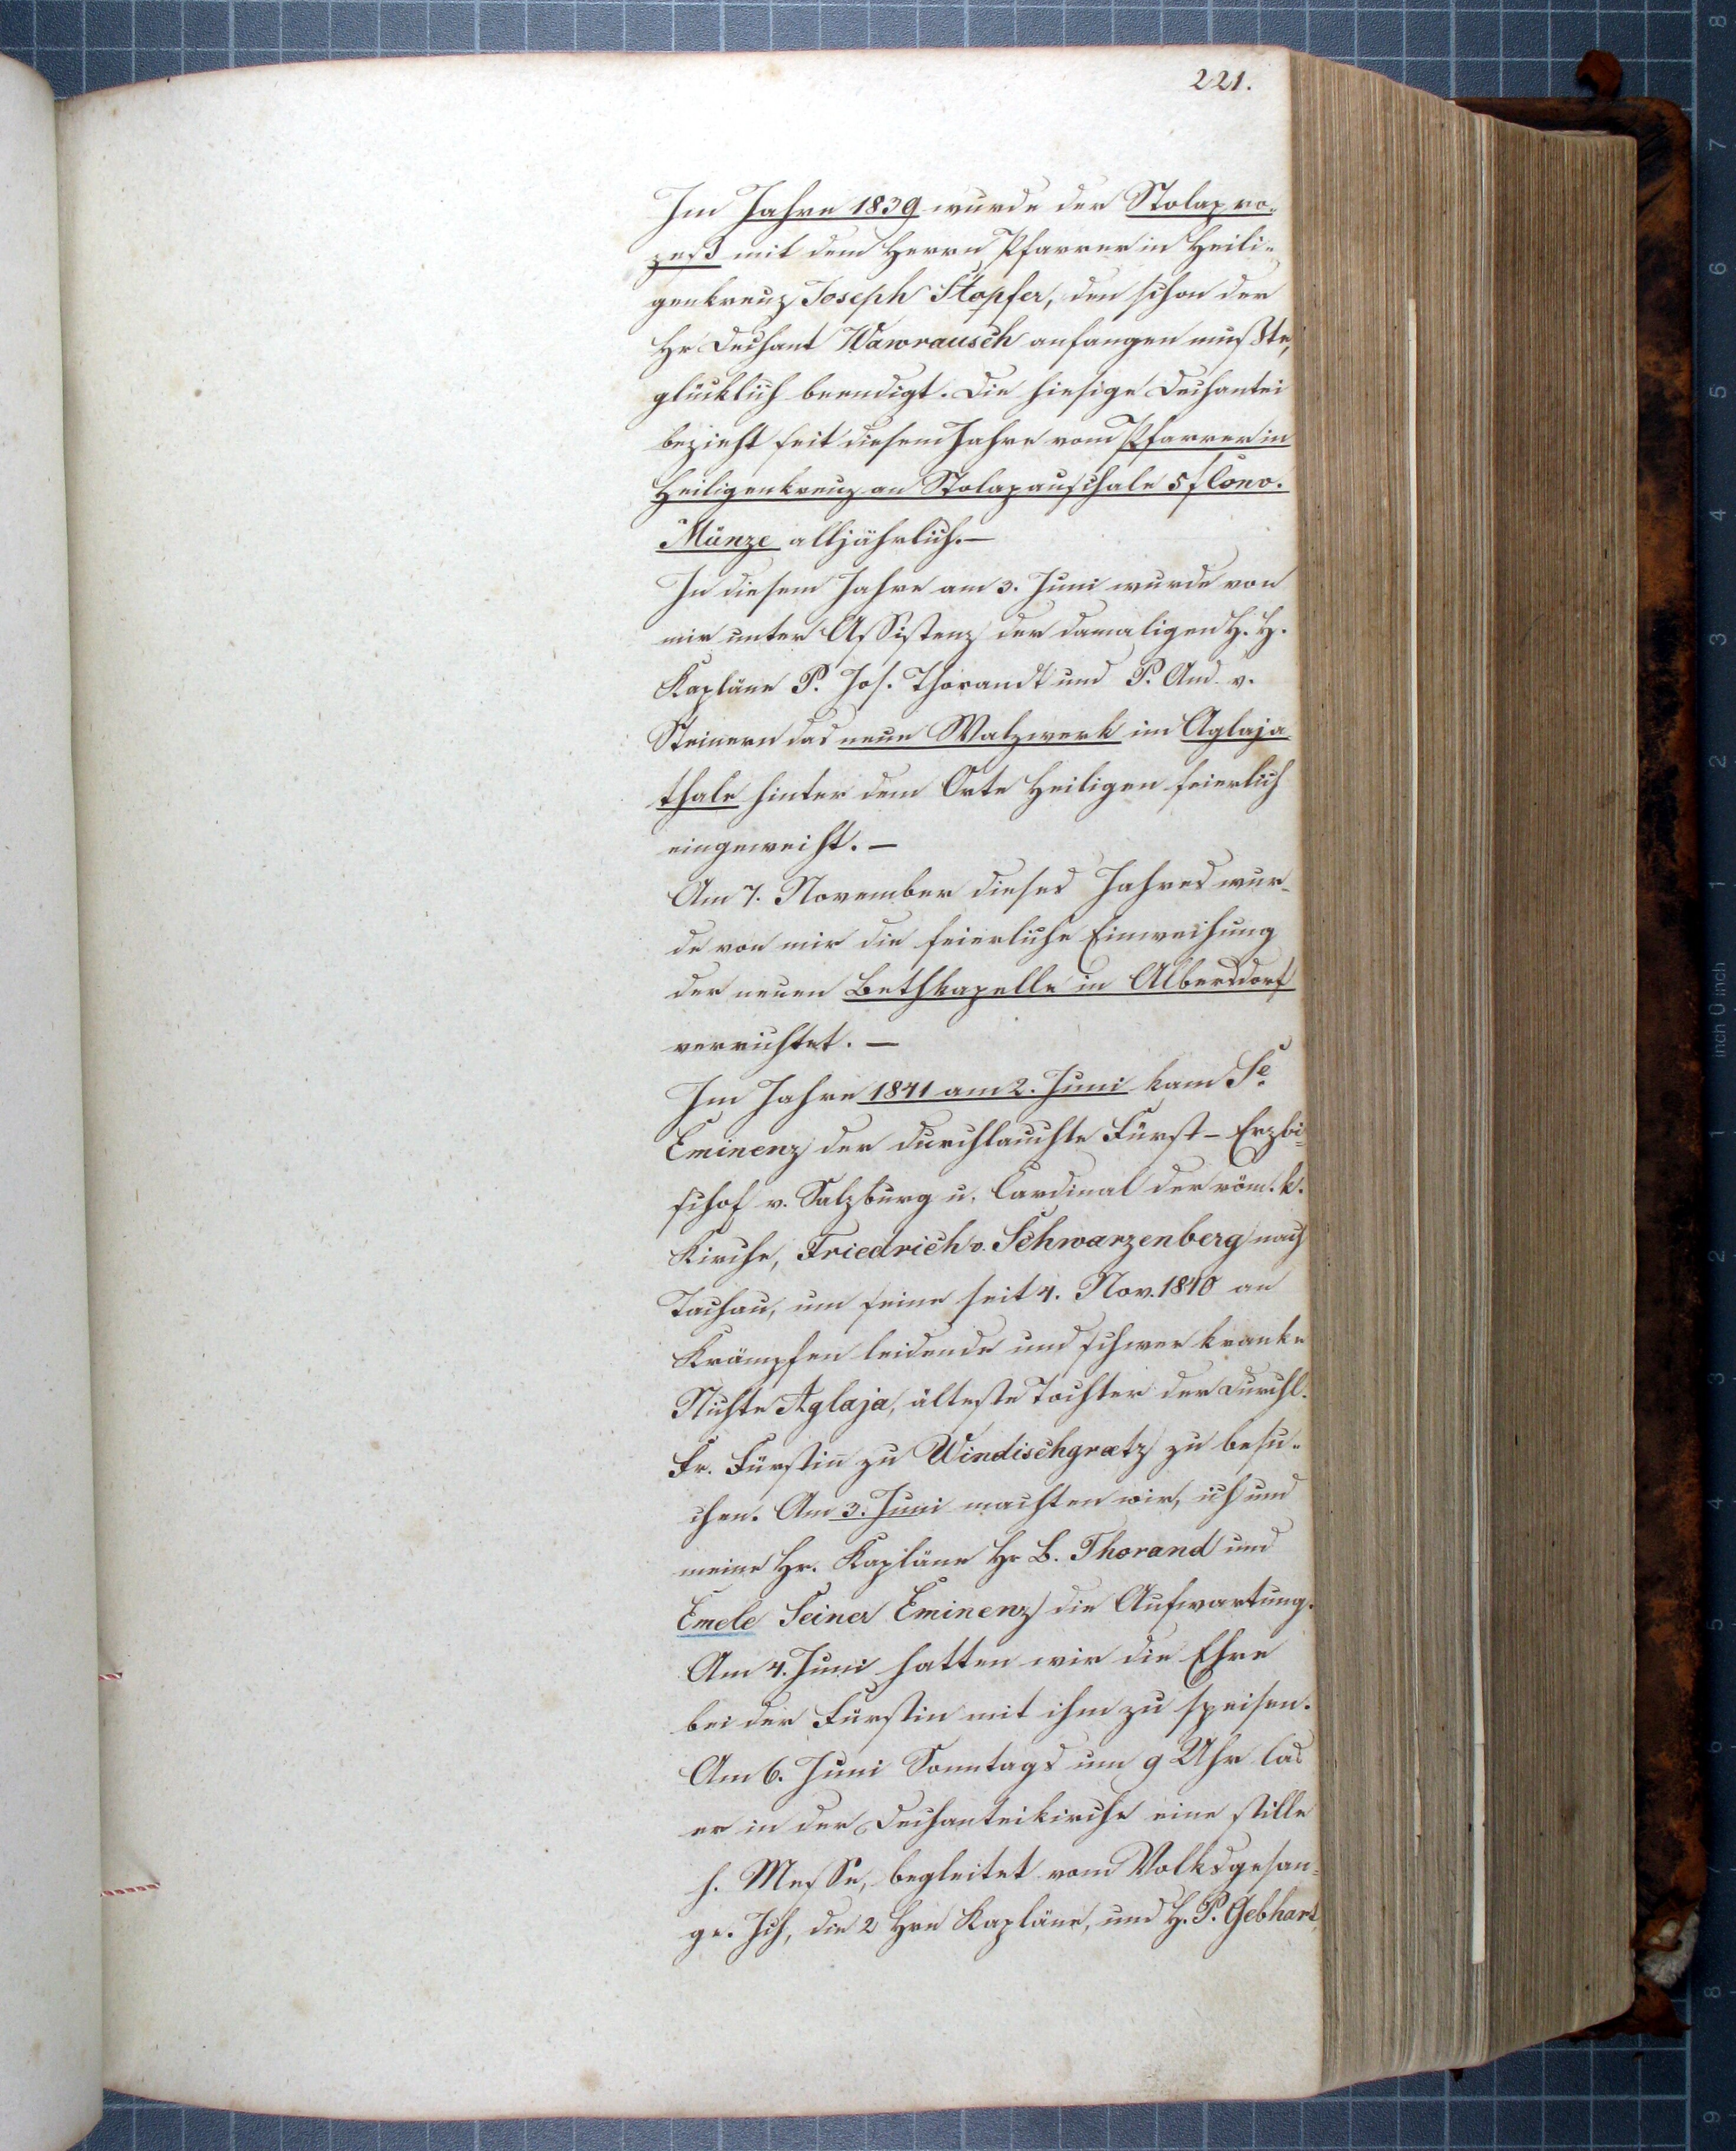 221.
Im Jahre 1839 wurde der Stolapro-
zeß mit dem Herrn Pfarrer in Heili-
genkreuz Joseph Stopfer, den schon der
Hr Dechant Wawrausch anfangen mußte,
glücklich beendigt. Die hiesige Dechantei
bezieht seit diesem Jahre vom Pfarrer in
Heiligenkreuz an Stolapauschale 5 f Conv.
Münze alljährlich. —
In diesem Jahre am 3. Juni wurde von
mir unter Assistenz der damaligen H. H.
Kapläne P. Jos. Thorandt und P. And. v.
Steinern das neue Walzwerk im Aglaja
thale hinter dem Orte Heiligen feierlich
eingeweiht. —
Am 7. November dieses Jahres wur-
de von mir die feierliche Einweihung
der neuen Bethkapelle in Albersdorf
verrichtet. —
Im Jahre 1841 am 2. Juni kam Se.
Eminenz der durchlauchte Fürst-Erzbi-
schof v. Salzburg u. Cardinal der röm. k.
Kirche, Friedrich v. Schwarzenberg nach
Tachau, um seine seit 4. Nov. 1840 an
Krämpfen leidende und schwer kranke
Nichte Aglaja, älteste Tochter der Durchl.
Fr. Fürstin zu Windischgraetz zu besu-
chen. Am 3. Juni machten wir, ich und
meine Hr. Kapläne Hr B. Thorand und
Emele Seiner Eminenz die Aufwartung.
Am 4. Juni hatten wir die Ehre
bei der Fürstin mit ihm zu speisen.
Am 6. Juni Sonntags um 9 Uhr las
er in der Dechanteikirche eine stille
h. Messe, begleitet vom Volksgesan-
ge. Ich, die 2 Hrn Kapläne, und H. P. Gebhart,